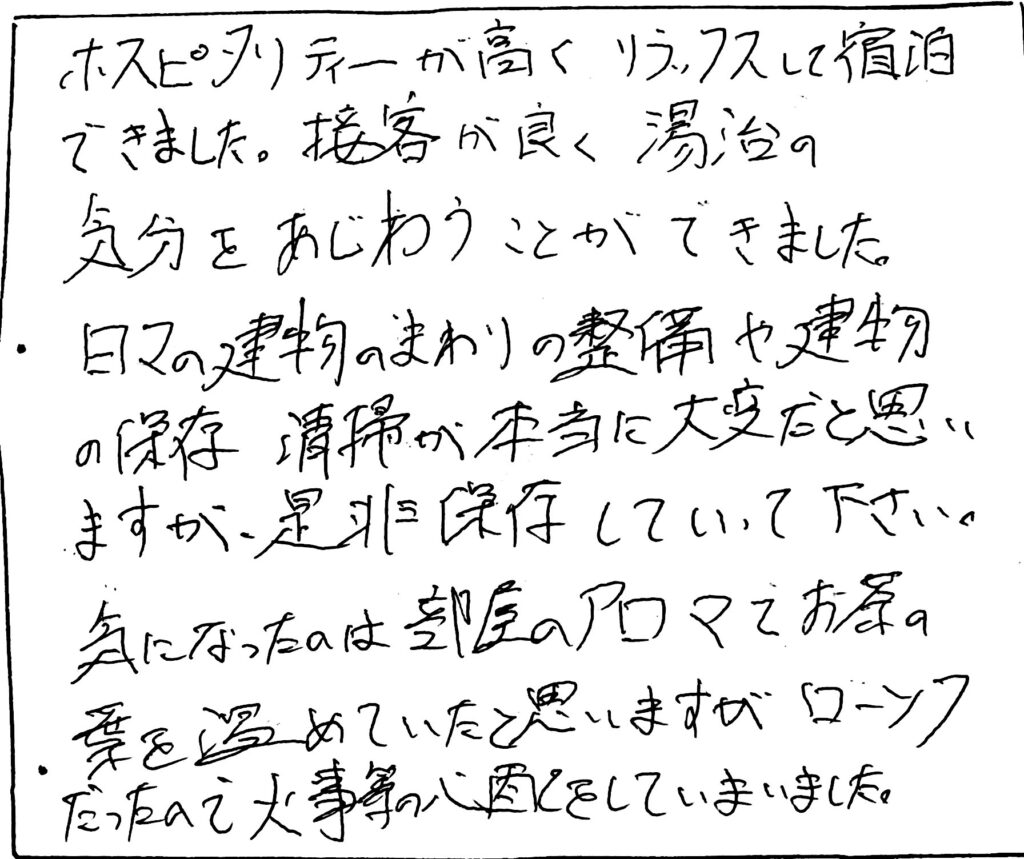 ホスピタリティーが高く リラックスして宿泊
できました。接客が良く 湯治の
気分をあじわうことができました。
・日々の建物のまわりの整備や建物
の保存 清掃が本当に大変だと思い
ますが、是非保存していって下さい。
気になったのは部屋のアロマでお茶の
葉を温めていたと思いますがローソク
・だったので火事等の心配をしていまいました。